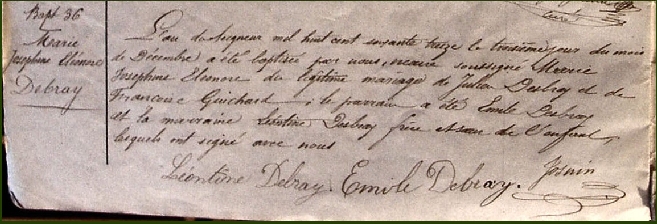 Bapt 36
Marie
Josephine Eléonore
Debray
L'an du seigneur mil huit cent soixante treize le troisième jour du mois
de Décembre a été baptisée par nous, vicaire soussigné Marie
Josephine Eleonore du légitime mariage de Julien Debray et de
Francoise Guichard ; le parrain a été Emile Debray
et la marraine Léontine Debray frère et sœur de l'enfant,
lesquels ont signé avec nous
Léontine Debray. Emile Debray.